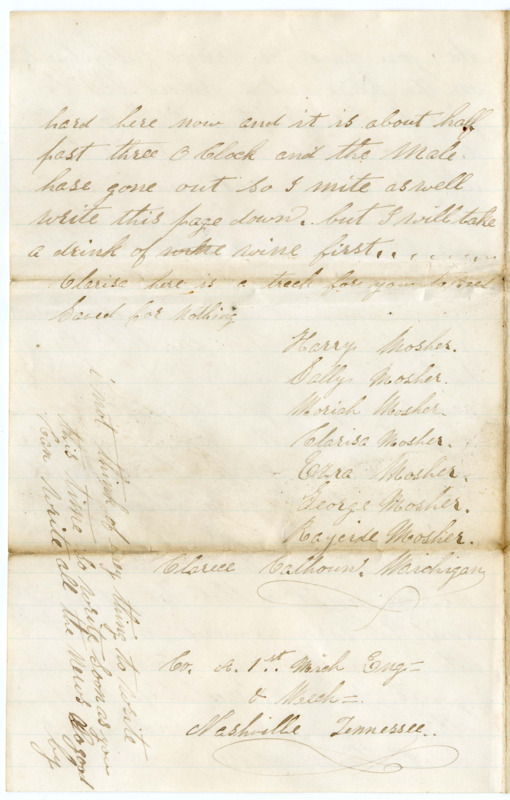 hard here now and it is about half
past three O Clock and the Male
hase gone out So I mite as well
write this page down. but I will take
a drink of white wine first..,.......
Clarisa here is a track for you to
Saved for nothing
Harry Mosher.
Sally Mosher.
Moriah Mosher.
Clarisa Mosher.
Ezra Mosher.
George Mosher.
Mosher.
Calhoun. Maichigan
Co. A. 1st. Mich Eng=
& Mech=.
Nashville Tennessee..
i not think of eny thing to write
this time So write Soon as you
Can write all the News a good
by